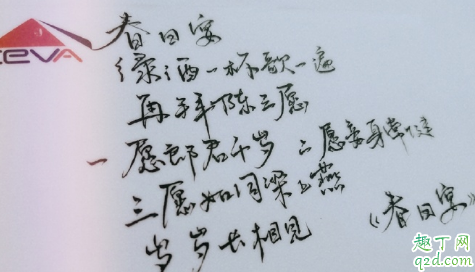 ceva
春日宴
绿酒一杯歌一遍
再拜陈三愿
一愿郎君千岁 二愿妾身常健
三愿如同梁上燕
岁岁长相见 《春日宴》
趣丁网
q2d.com